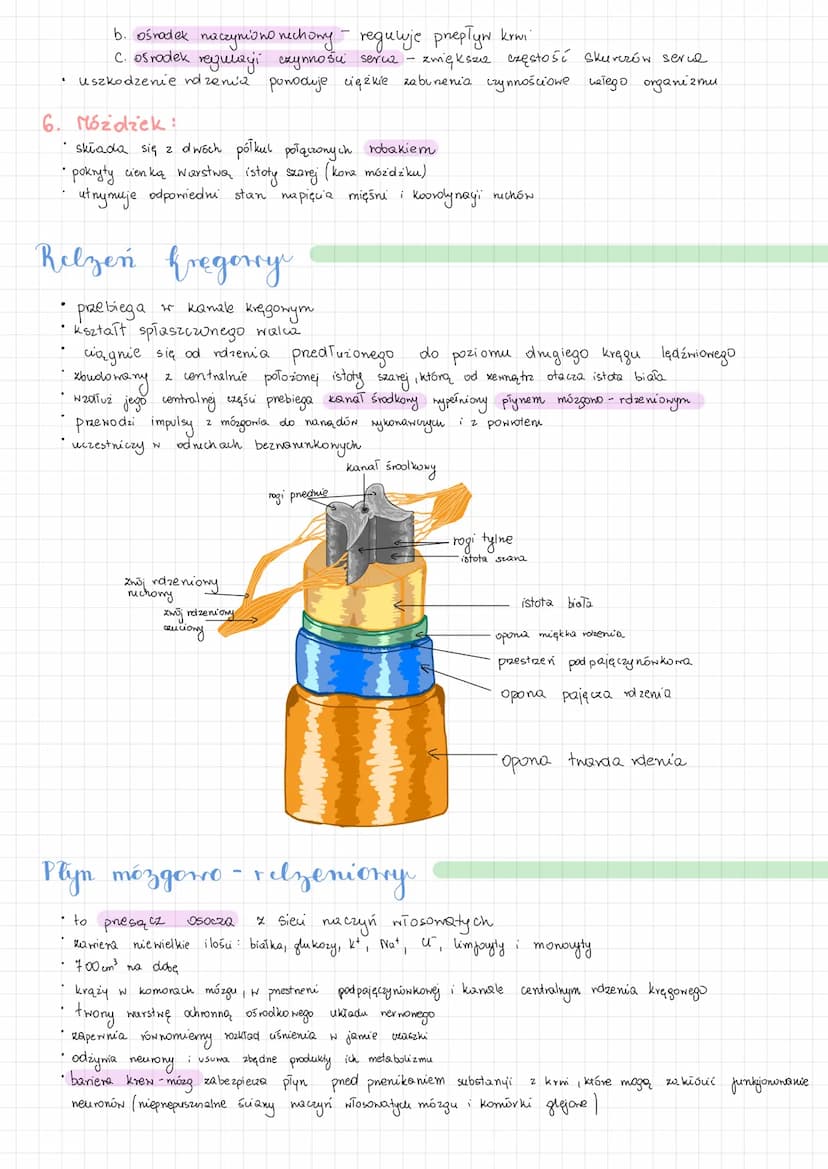 b. ośrodek naczynioworuchowy - reguluje przepływ krwi
c. ośrodek regulacji czynności serca - zwiększa częstość skurczów serca
• uszkodzenie rdzenia powoduje ciężkie zaburzenia czynnościowe całego organizmu
6. Móżdżek:
• składa się z dwóch półkul połączonych robakiem
• pokryty cienką warstwą istoty szarej (kora móżdżku)
• utrzymuje odpowiedni stan napięcia mięśni i koordynacji ruchów
Rdzeń kręgowy
• przebiega w kanale kręgowym
• kształt spłaszczonego walca
• ciągnie się od rdzenia przedłużonego do poziomu drugiego kręgu lędźwiowego
• zbudowany z centralnie położonej istoty szarej, którą od zewnątrz otacza istota biała
• wzdłuż jego centralnej części przebiega kanał środkowy wypełniony płynem mózgowo-rdzeniowym
• przewodzi impulsy z mózgowia do narządów wykonawczych i z powrotem
• uczestniczy w odruchach bezwarunkowych
kanał środkowy
rogi przednie
rogi tylne
istota szara
zwój rdzeniowy
ruchowy
zwój rdzeniowy
czuciowy
istota biała
opona miękka rdzenia
przestrzeń podpajęczynówkowa
opona pajęcza rdzenia
opona twarda rdzenia
Płyn mózgowo-rdzeniowy
• to przesącz osocza z sieci naczyń włosowatych
• zawiera niewielkie ilości: białka, glukozy, K⁺, Na⁺, Cl⁻, limfocyty i monocyty
• 700 cm³ na dobę
• krąży w komorach mózgu, w przestrzeni podpajęczynówkowej i kanale centralnym rdzenia kręgowego
• tworzy warstwę ochronną ośrodkowego układu nerwowego
• zapewnia równomierny rozkład ciśnienia w jamie czaszki
• odżywia neurony i usuwa zbędne produkty ich metabolizmu
• bariera krew-mózg zabezpiecza płyn przed przenikaniem substancji z krwi, które mogą zakłócić funkcjonowanie
neuronów (nieprzepuszczalne ściany naczyń włosowatych mózgu i komórki glejowe)